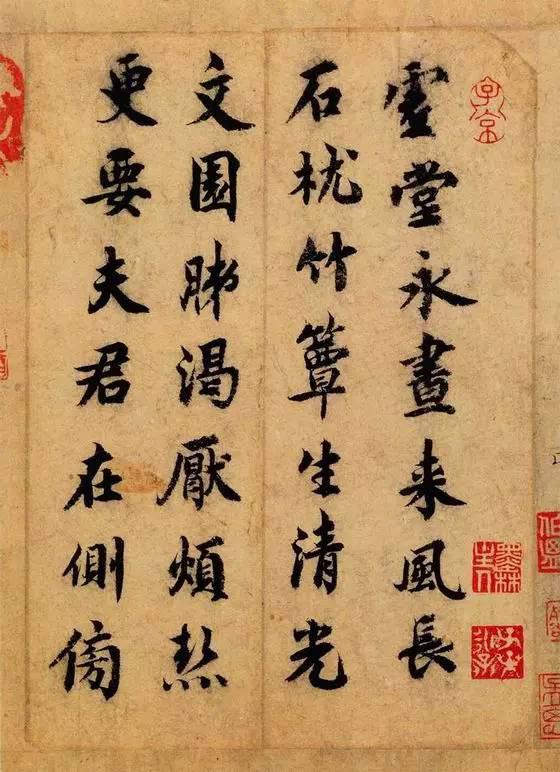 虚堂永昼来風長
石枕竹簟生清光
文園肺渴厭煩𤍠
更要夫君在側傍